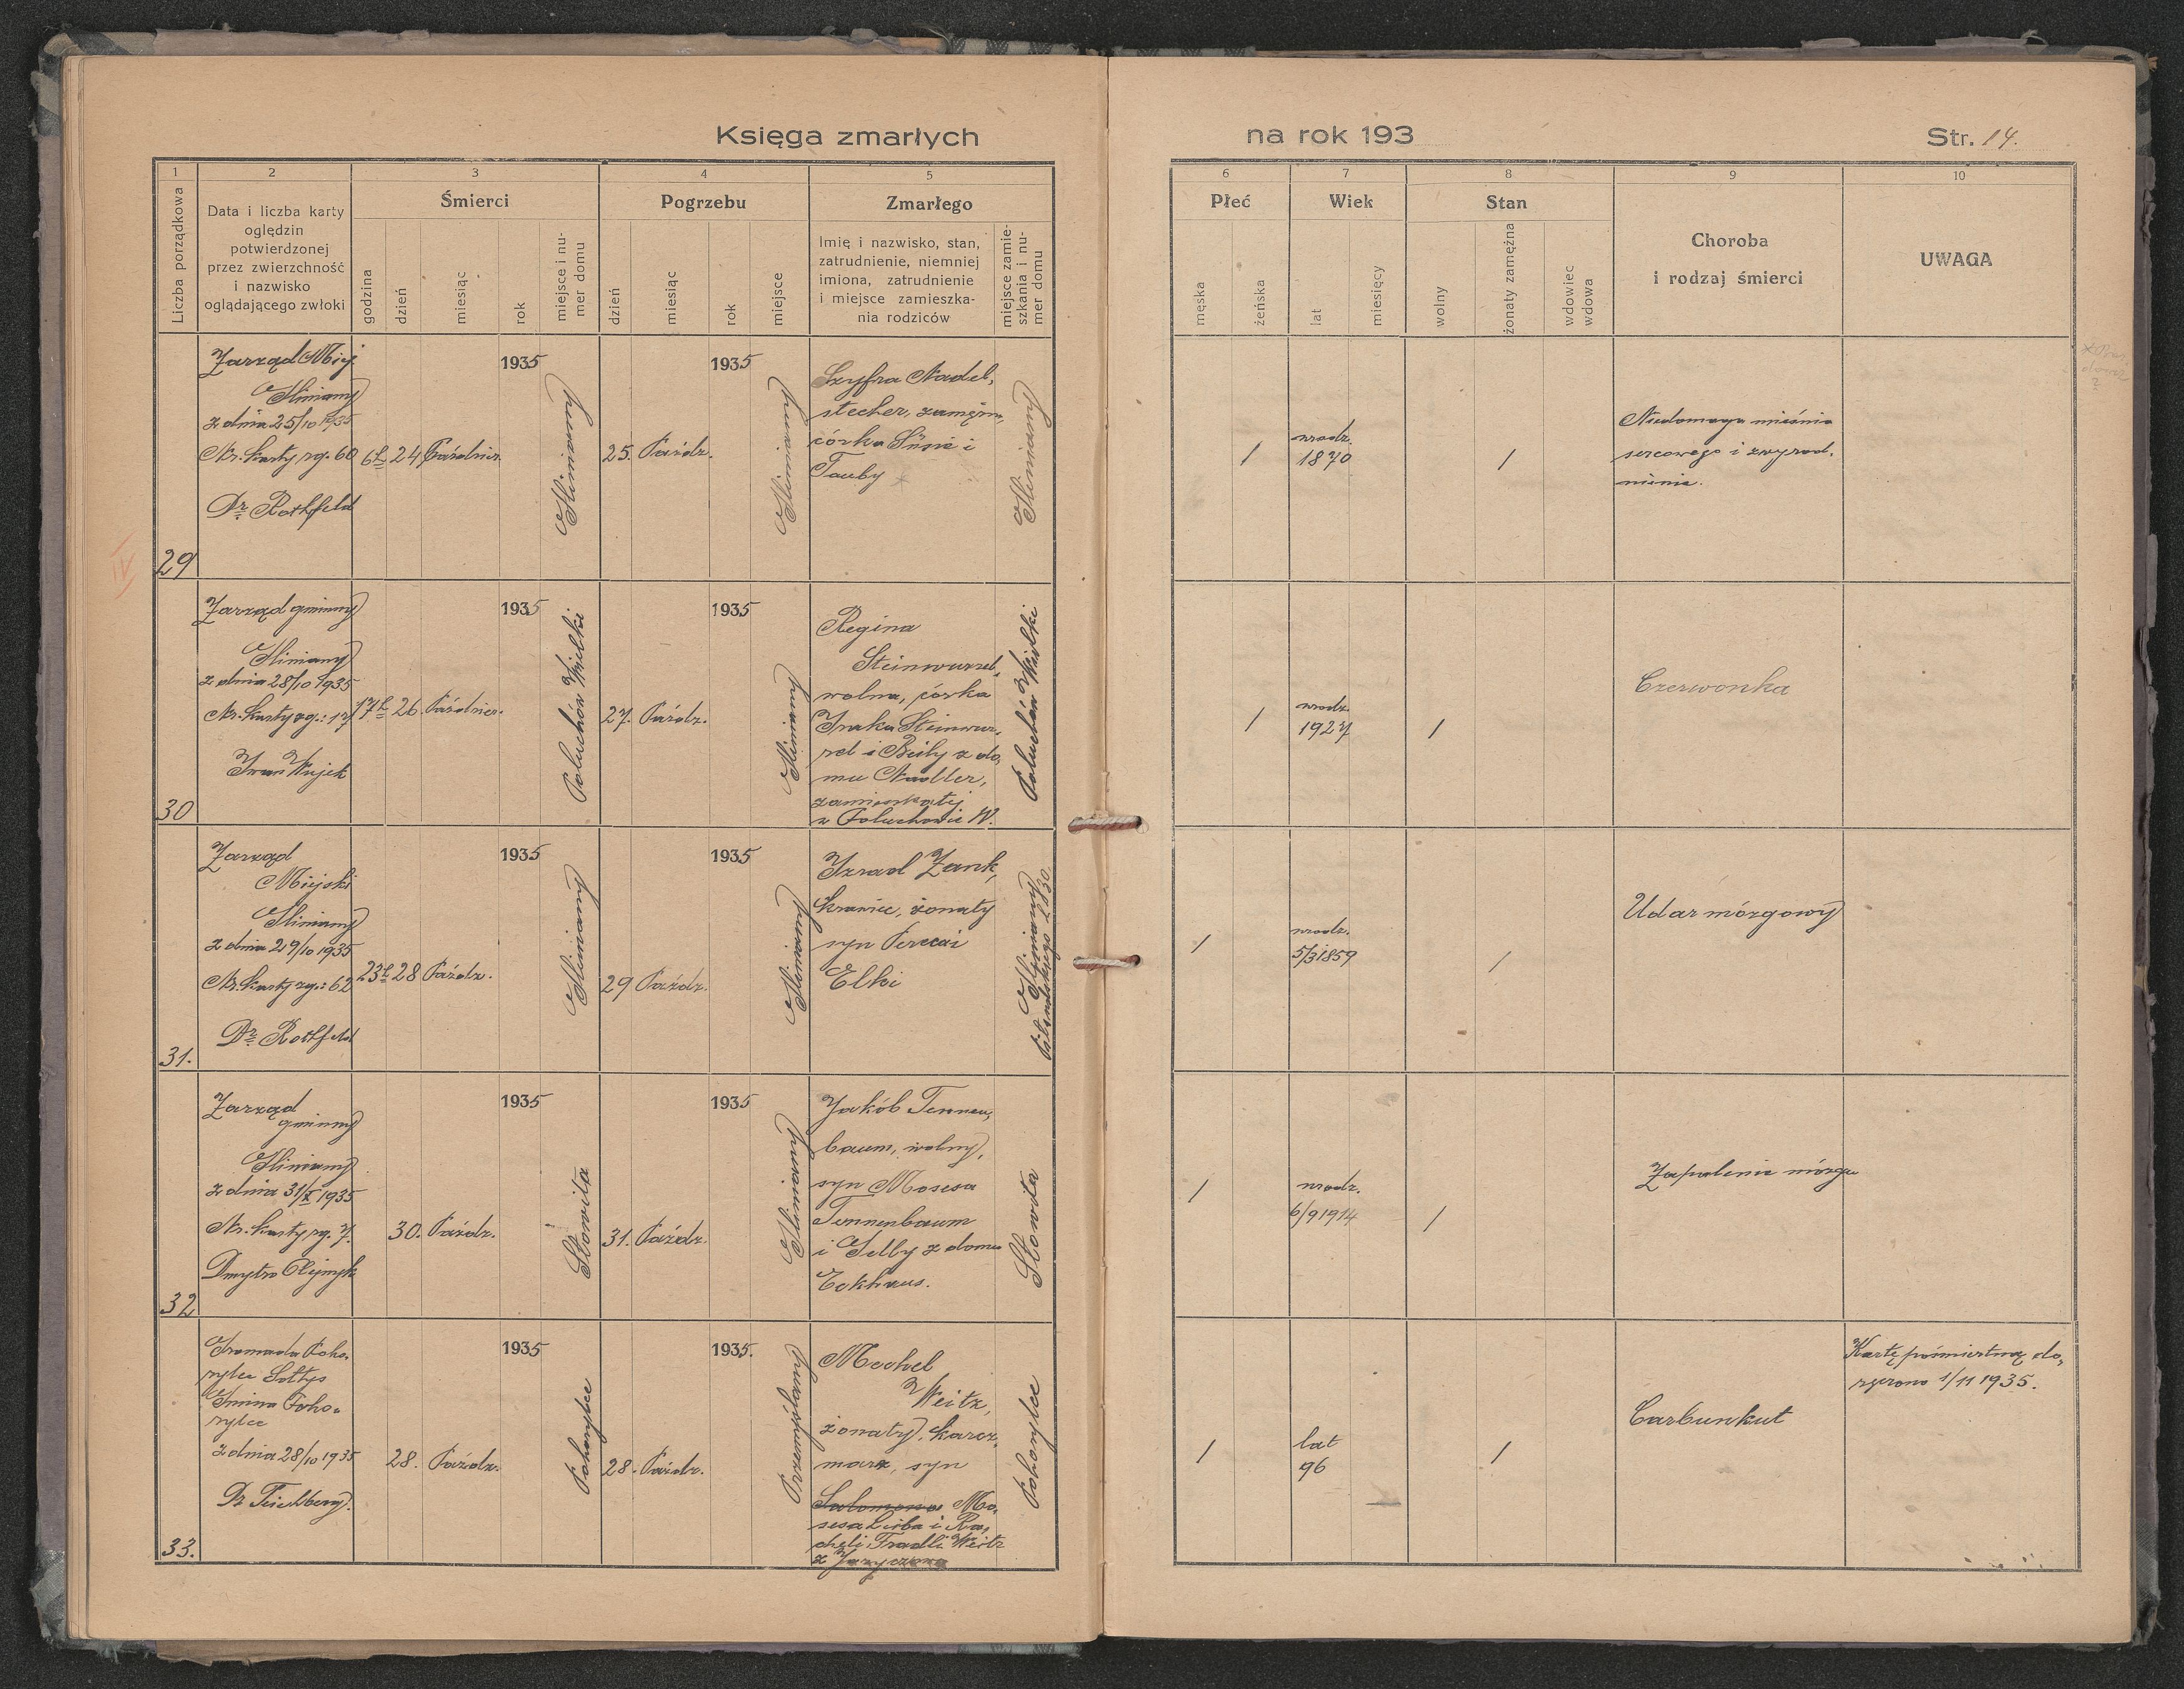 Księga zmarłych
na rok 193
Str. 14.
1
2
3
4
5
6
7
8
9
10
Liczba porządkowa
Data i liczba karty
oględzin
potwierdzonej
przez zwierzchność
i nazwisko
oglądającego zwłoki
Śmierci
godzina
dzień
miesiąc
rok
miejsce i nu-
mer domu
Pogrzebu
dzień
miesiąc
rok
miejsce
Zmarłego
Imię i nazwisko, stan,
zatrudnienie, niemniej
imiona, zatrudnienie
i miejsce zamieszka-
nia rodziców
miejsce zamie-
szkania i nu-
mer domu
Płeć
męska
żeńska
Wiek
lat
miesięcy
Stan
wolny
żonaty zamężna
wdowiec
wdowa
Choroba
i rodzaj śmierci
UWAGA
29
Zarząd Miej
Gliniany
z dnia 25/10 1935
Nr. karty zg. 60
Dr Rothfeld
6h
24
Październ.
1935
Gliniany
25.
Paźdz.
1935
Gliniany
Szyfra Nadel,
stecher, zamężn,
córka Süsie i
Tauby
Gliniany
/
urodz.
1870
/
Niedomoga mięśnia
sercowego i zwyrod,
nienie.
30
Zarząd gminny
Gliniany
z dnia 28/10 1935
Nr. karty zg.: 17
Iwan Wujek
17h
26.
Październ.
1935
Poluchów Wielki
27.
Paźdz.
1935
Gliniany
Regina
Steinwurzel,
wolna, córka
Izaka Steinwur,
zel i Beily z do,
mu Nadler,
zamieszkałej
w Poluchowie W.
Poluchów Wielki
/
urodz.
1927
/
Czerwonka
31.
Zarząd
Miejski
Gliniany
z dnia 29/10 1935
Nr. karty zg.: 62
Dr Rothfeld
23h
28
Paźdz.
1935
Gliniany
29
Paźdz.
1935
Gliniany
Izrael Zank,
krawiec, żonaty
syn Perca i
Elki
Gliniany
Piłsudskiego 2830.
/
urodz.
5/3 1859
/
Udar mózgowy
32
Zarząd
gminny
Gliniany
z dnia 31/X 1935
Nr. karty zg. 7.
Dmytro Olijnyk
30.
Paźdz.
1935
Słowita
31.
Paźdz.
1935
Gliniany
Jakób Tennen,
baum, wolny,
syn Mosesa
Tennenbaum
i Selby z domu
Eokhaus.
Słowita
/
urodz.
6/9 1914
/
Zapalenie mózgu
33.
Gromada Poho,
rylce Sołtys
Gmina Poho=
rylce
z dnia 28/10 1935
28.
Paźdz.
1935
Pohorylce
28.
Paźdz.
1935.
Przemyślany
Mechel
Weitz,
żonaty, karcz,
marz, syn
Salomona Mo,
sesa Leiba i Ra,
cheli Fradli Weitz
Pohorylce
/
lat
96
/
Carbunkuł
Kartę pośmiertną do,
ręczono 1/11 1935.
IV